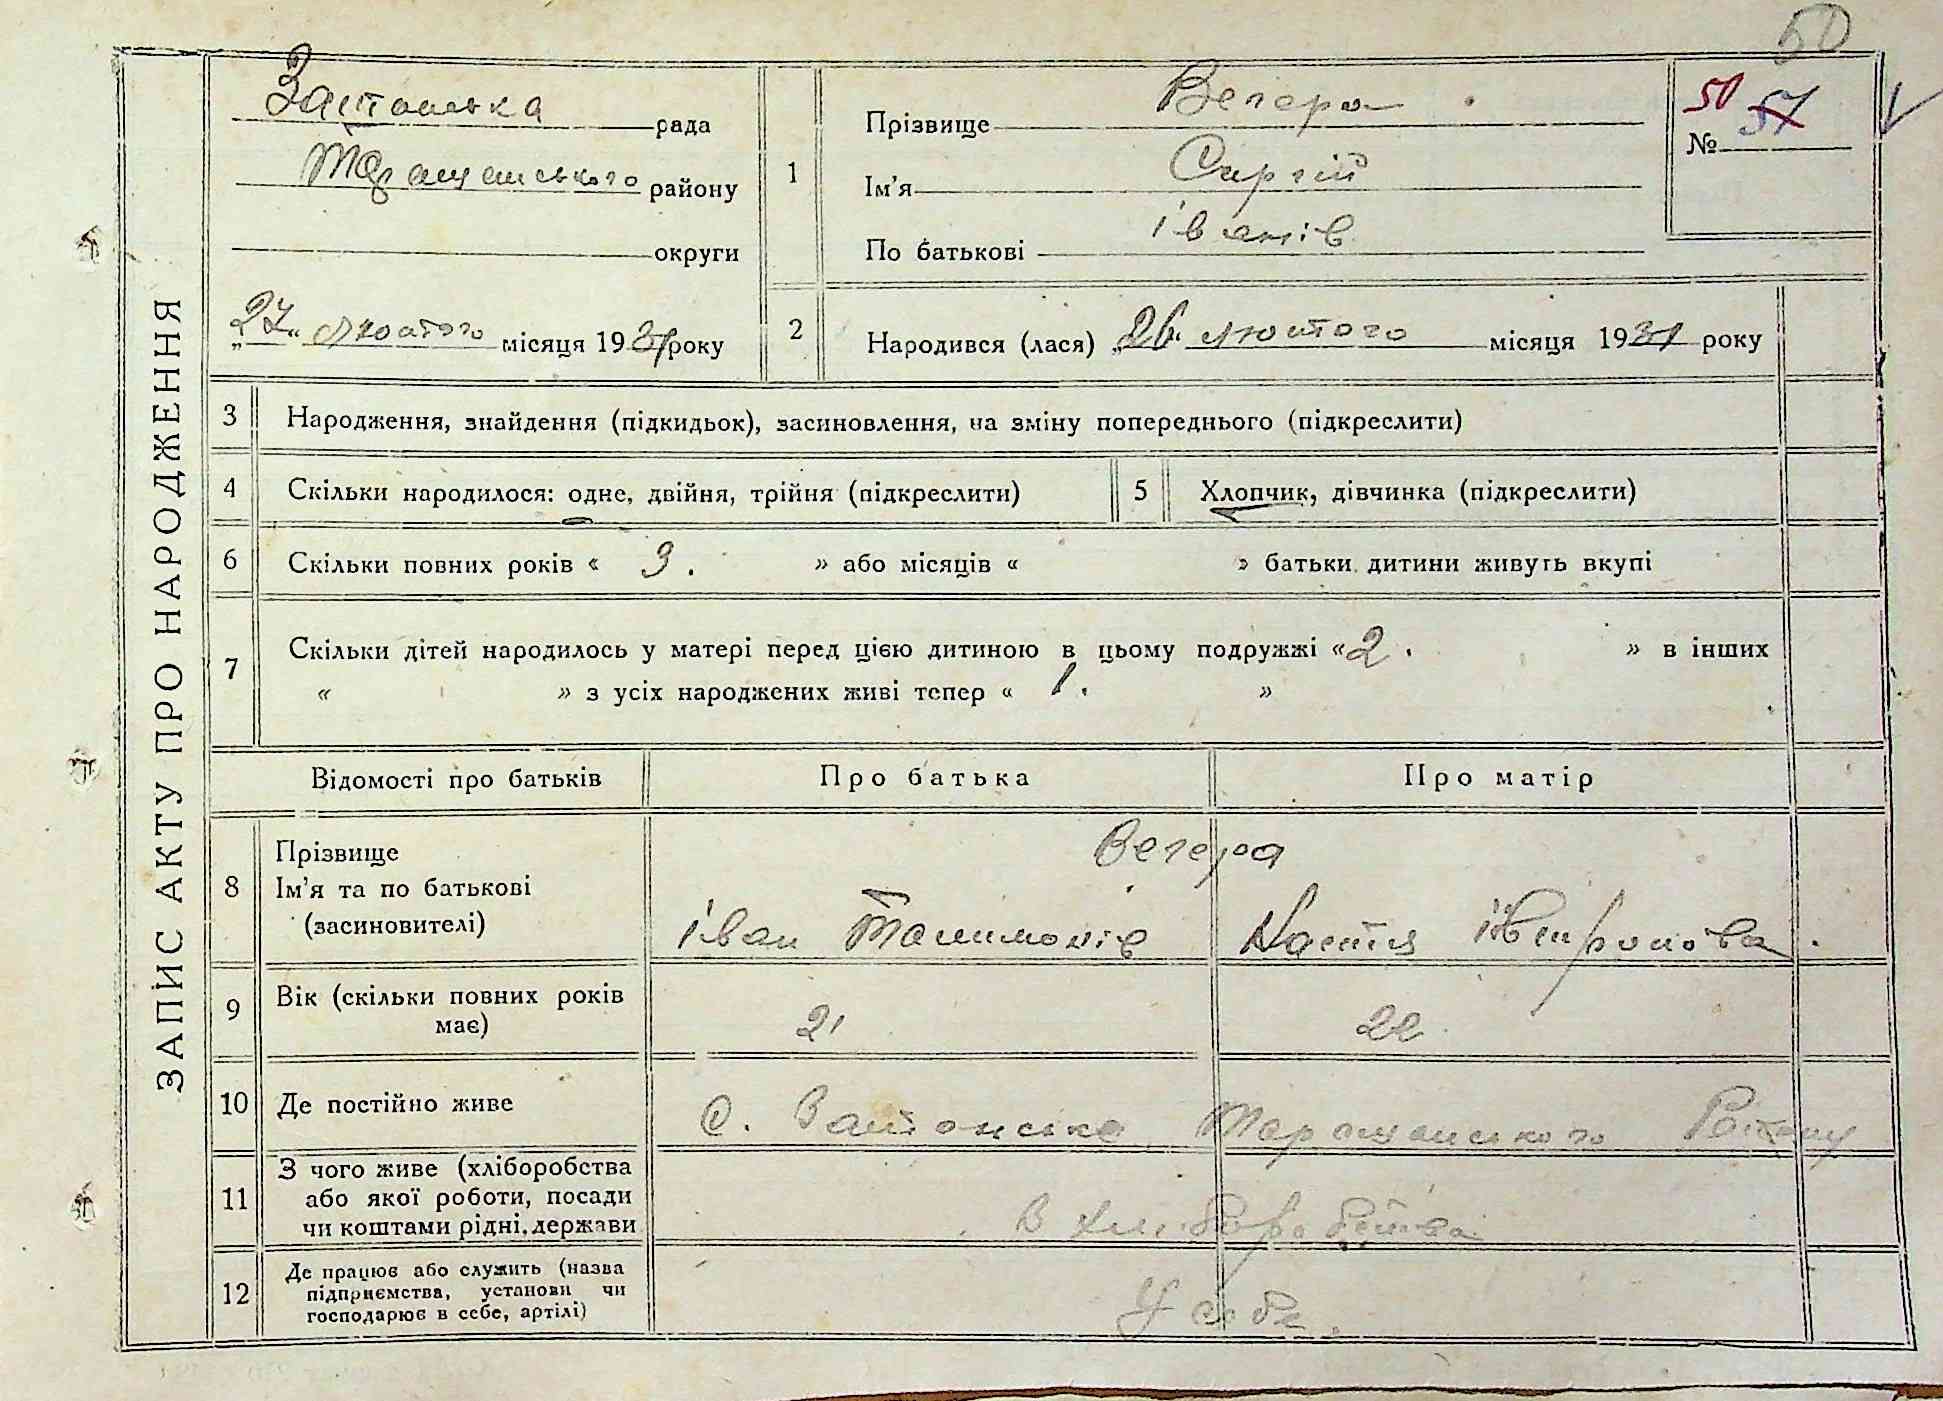 50
ЗАПИС АКТУ ПРО НАРОДЖЕННЯ
рада
Таращанського району
округи
„27“ лютого місяця 1931 року
1
Прізвище Вегера
Ім'я Сиргій
По батькові Іванів
50 57
№
2
Народився (лася) „26“ лютого місяця 1931 року
3 Народження, знайдення (підкидьок), засиновлення, на зміну попереднього (підкреслити)
4 Скільки народилося: одне, двійня, трійня (підкреслити)
5 Хлопчик, дівчинка (підкреслити)
6 Скільки повних років « 3. » або місяців « » батьки дитини живуть вкупі
7 Скільки дітей народилось у матері перед цією дитиною в цьому подружжі «2. » в інших
« » з усіх народжених живі тепер « 1. »
Відомості про батьків Про батька Про матір
8 Прізвище Вегера
Ім'я та по батькові
(засиновителі) Іван Настя
9 Вік (скільки повних років
має) 21 22
10 Де постійно живе С. Таращанського Району
11 З чого живе (хліборобства
або якої роботи, посади
чи коштами рідні, держави
В хліборобства
12 Де працює або служить (назва
підприємства, установи чи
господарює в себе, артілі)
У себе.